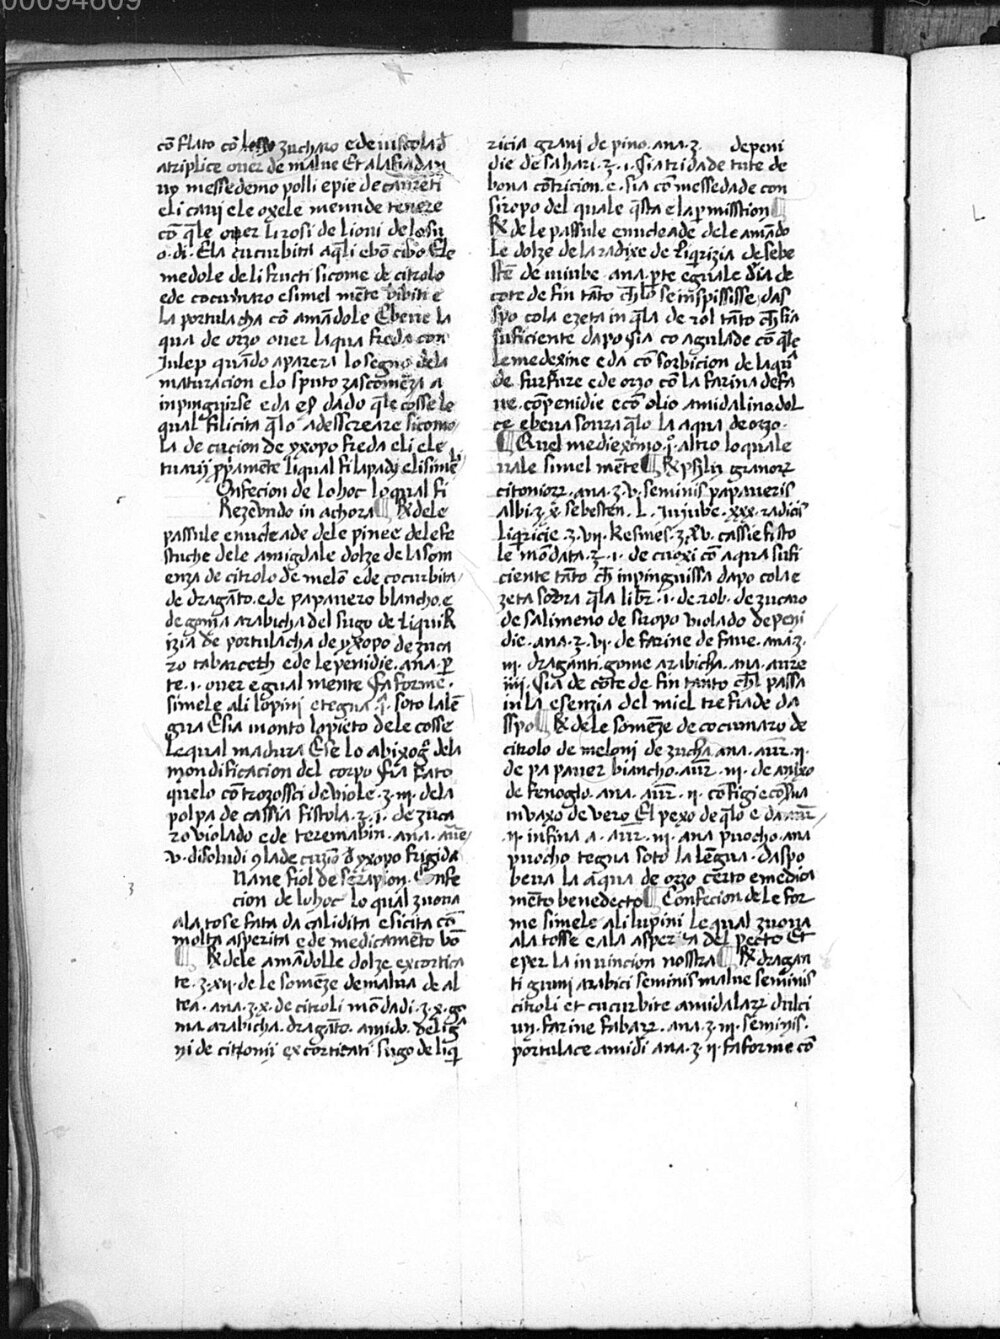 00094609
cō flato cō lesso zucharo e de iusculo d
atriplice ouer de malue Et ala fiadan
uy messedemo polli e pie de
eli cani ele oxele menude tenere
cō q̄le ouer li rosi de li oui de lo suo
o·di· Ela cucurbiti aq̄li ebō cibo Ele
medole deli fructi sicome de citrolo
ede cocumaro e simel mēte bibiti e
la portulacha cō amādole E beue la
qua de orzo ouer laqua freda con
Julep quādo aparera lo segno dela
maturacion elo sputo zascomēza a
inpinguirse e da es dado q̄le cosse le
qual filicita q̄lo adesscreare sicomo
la de cucion de yxopo freda eli ele
tuarij ꝓpamēte liqual fi lapadij elisimel
Onfecion de lohoc loqual fi
Rezeundo in achora ¶ ℞ dele
passule enucleade dele pinee dele fe
stuche dele amigdale dolze de la som
enza de citrolo de melō e de cocurbita
de dragāto e de papauero blancho e
de gomā arabicha del sugo de liquiri
izia de portulacha de yxopo de zuca
ro tabarceth e de le penidie. ana. p
te .i. ouer egual mente fia forme
simele ali lopini e tegna q̄ soto la lē
gua E sia monto lo pieto dele cosse
lequal madura E se lo abixog° dela
mondificacion del corpo sia fato
quelo cō trozossci de viole .ʒ. iii. dela
polpa de cassia fistola .ʒ. i. de zuca
ro violado e de teremabin. ana. aure
v. disoludi ꝯ la de cuziō d yxopo frigida
Nane fiol de serapion. Confe
cion de lohoc lo qual zuoua
ala tose fata da calidita e sicita cō
molta asperita e de medicamēto bō
¶ ℞ dele amādolle dolze excortica
te .ʒ. xii. de le somēze de malua de al
tea. ana .ʒ. x. de citroli mōdadi .ʒ. x. go
ma arabicha. dragāto. amido. de lig
ni de citronii excorticati sugo de liq̄
ricia grani de pino. ana .ʒ. depeni
die de sahari .ʒ. i. sia tridade tute de
bona cōtricion. e. sia cō messedade con
siropo del quale q̄sta e la p̄misstion ¶
℞ de le passule enucleade dele amādo
le dolze de la radixe de liqrizia de sebe
stē de iuiube. ana. p̄te eguale sia de
cote de fin tāto ch̄ lo se inspississe das
spo cola e zeta in q̄la de rol tāto ch̄ sia
suficiente dapo sia co agulade cō q̄le
le medexine e da cō sorbicion de laqua
de furfure e de orzo cō la farina de fa
ue. cō penidie e cō olio amidalino dol
ce e beua soura q̄lo la aqua de orzo.
¶ Quel mediexmo. p̄. altro lo quale
uale simel mēte ¶ ℞ psilij granorꝝ
citoniorꝝ. ana .ʒ. v. seminis papaueris
albi .ʒ. x. sebesten. l. Jujube. xxx. radicis
liqricie .ʒ. vii. Kesmes .ʒ. xv. cassie fisto
le mōdata .ʒ. i. de cuoxi cō aqua sufi
ciente tāto ch̄ inpinguissa dapo cola e
zeta sobra q̄la libr. i. de rob. de zucaro
de salimeno de siropo violado de peni
die. ana. ʒ. vi. de farine de faue. ana .ʒ.
iii. draganti. gome arabicha. ana. aure
iiii. sia de cote de fin tanto ch̄l passa
in la esenzia del miel tre fiade da
sspo ¶ ℞ dele somēze de cocumaro de
citrolo de meloni de zucha. ana. aur. ii.
de papauer biancho. aur. iii. de anixo
de fenoglo. ana. aur. ii. cō figi e cō sua
in vaxo de vero El pexo de q̄lo e da aur
ii. infina a. aur. iii. ana puocho. ana
puocho tegna soto la lēgua. daspo
beua la aqua de orzo certo e medica
mēto benedecto ¶ Confecion de le for
me simele ali lupini le qual zuoua
ala tosse e ala asperita del pecto Et
e per la inuincion nostra ¶ ℞ dragan
ti gumi arabici seminis malue seminis
citroli et cucurbite amidalarꝝ dulci
um. farine fabarꝝ. ana .ʒ. iii. seminis.
portulace amidi ana .ʒ. ii. fa forme cō